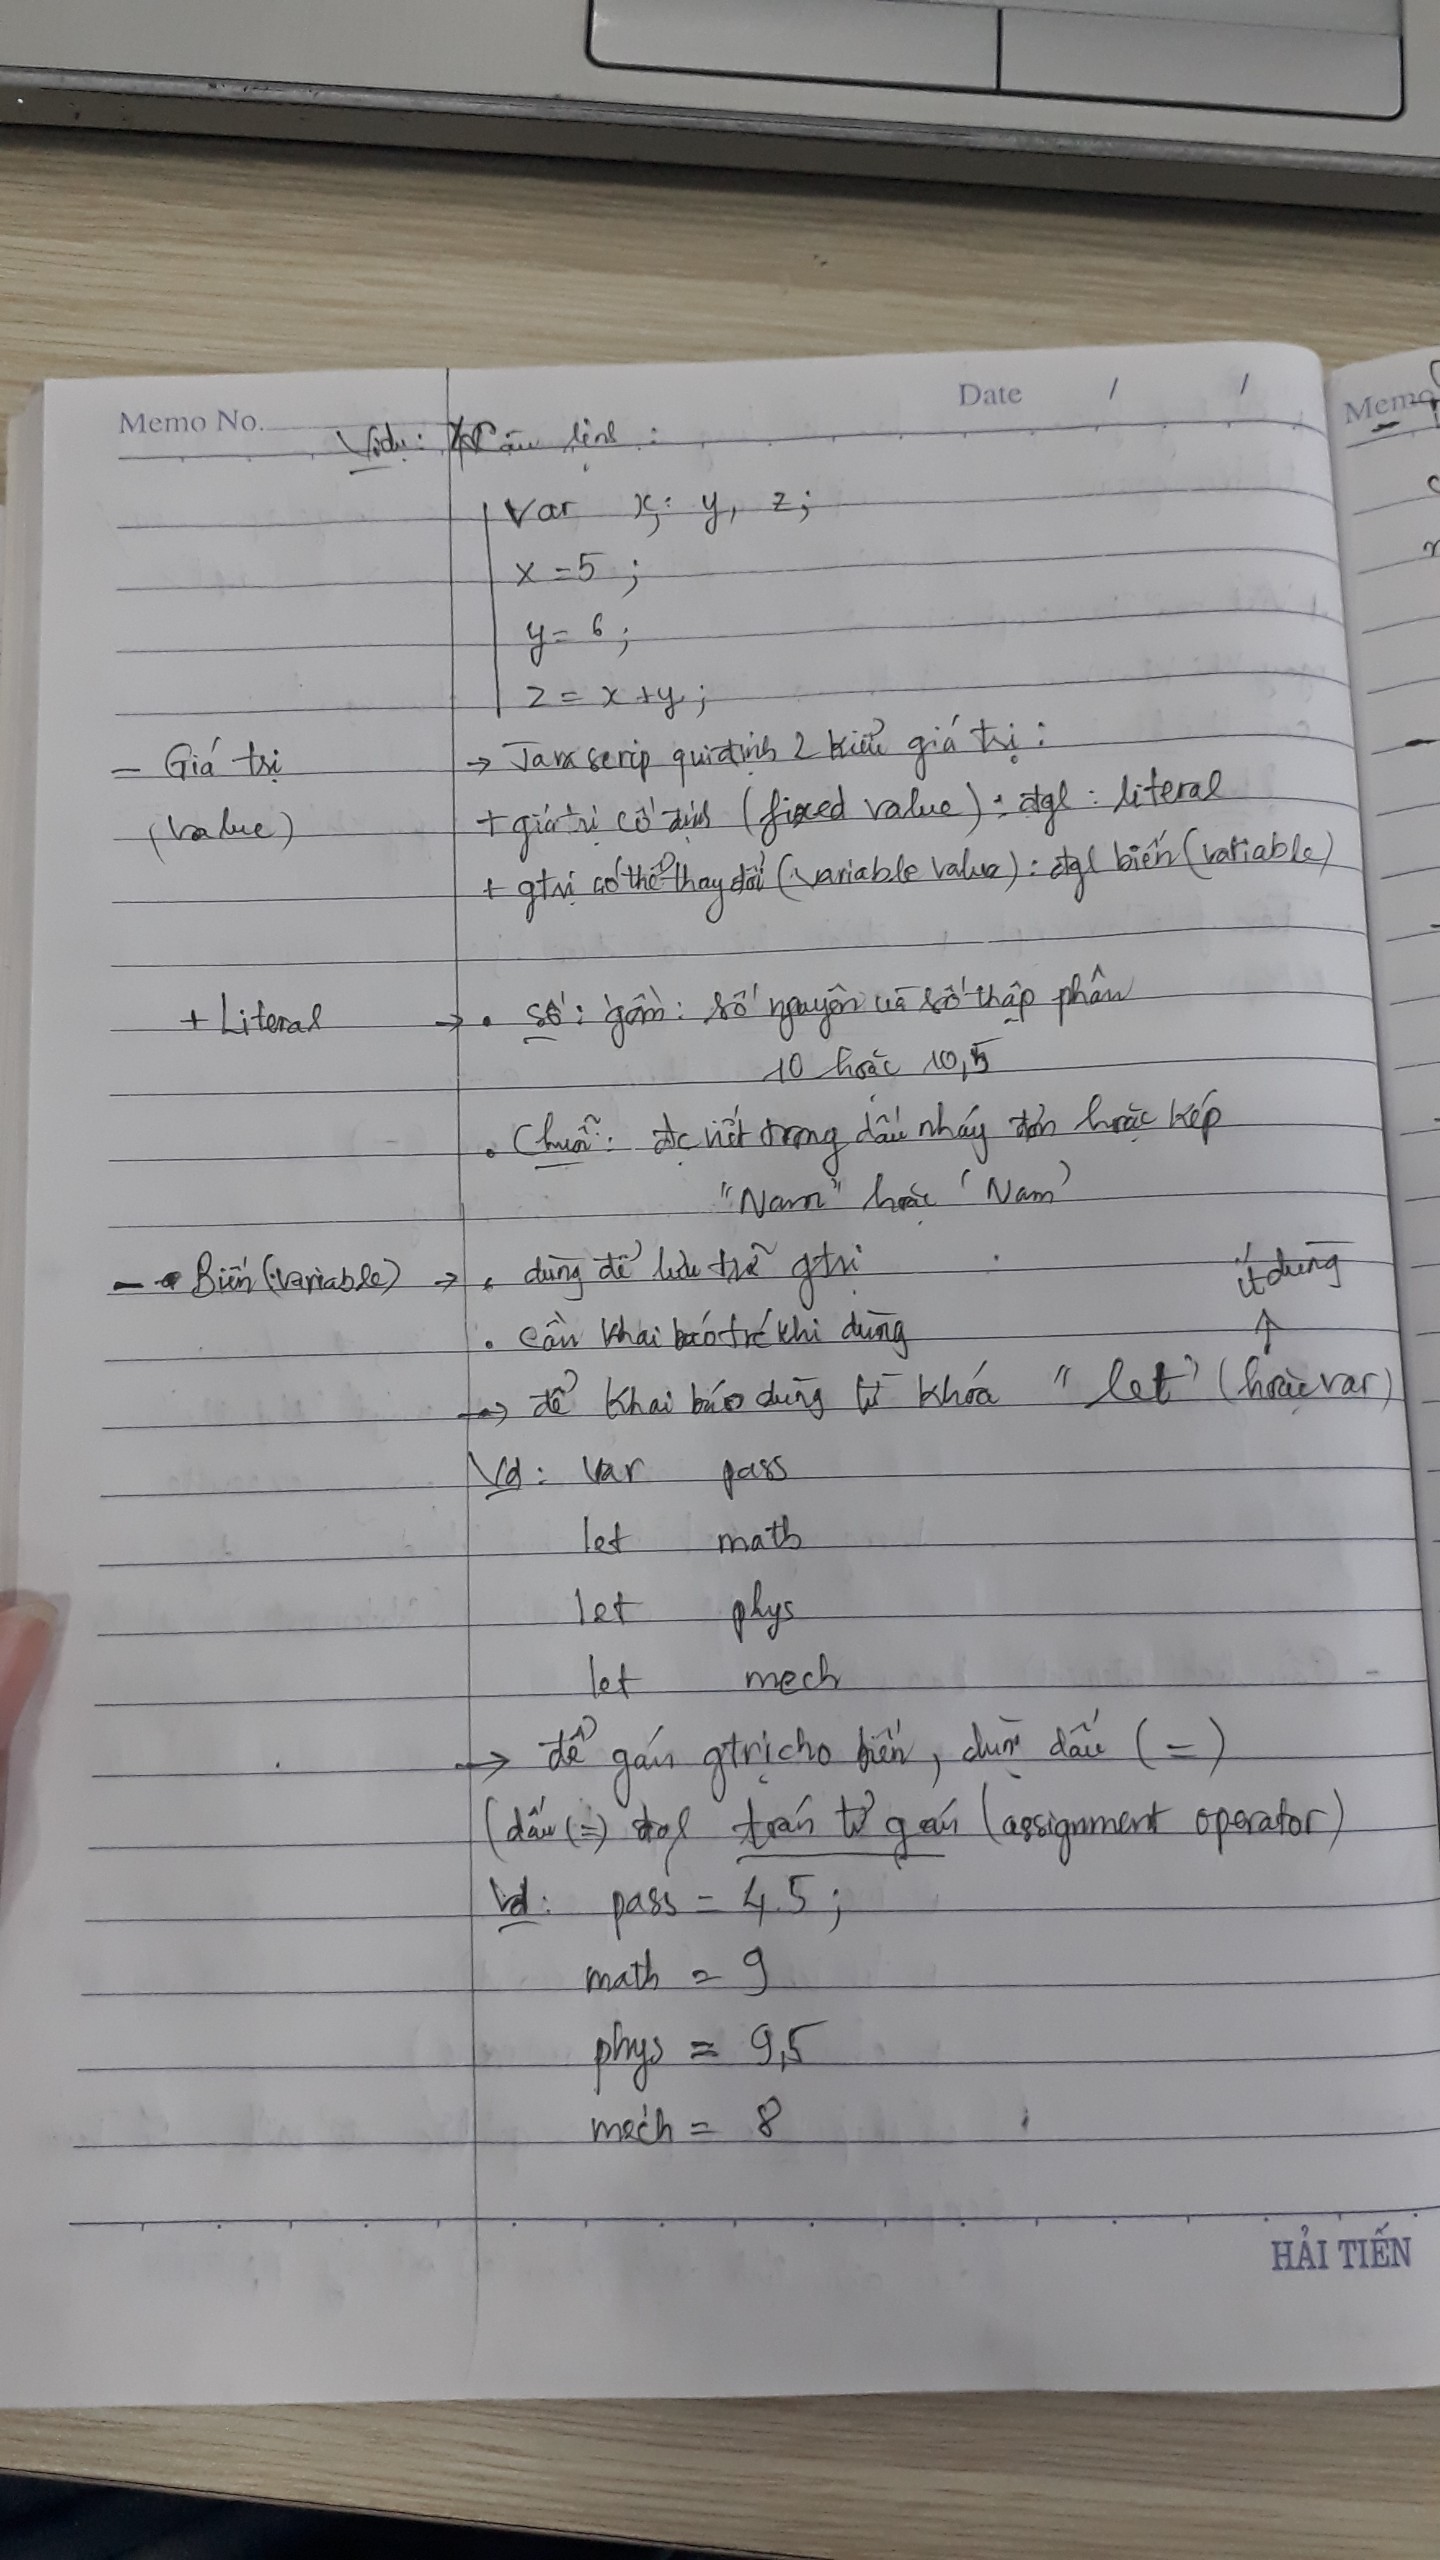 Memo No. Date / /
Ví dụ: Câu lệnh:
Var x, y, z;
x = 5 ;
y = 6 ;
z = x + y ;
- Giá trị → Javascrip qui định 2 kiểu giá trị :
(Value) + giá trị cố định (fixed value) : đgl : literal
+ gtrị có thể thay đổi (variable value) : đgl biến (variable)
+ Literal → . số : gồm : số nguyên và số thập phân
10 hoặc 10,5
. Chuỗi : đc viết trong dấu nháy đơn hoặc kép
"Nam" hoặc 'Nam'
- Biến (variable) → . dùng để lưu trữ gtrị
ít dùng
↑
. cần khai báo trc khi dùng
→ để khai báo dùng từ khóa "let" (hoặc var)
Vd : var pass
let math
let phys
let mech
→ để gán gtrị cho biến, dùng dấu (=)
(dấu (=) đgl toán tử gán (assignment operator)
Vd : pass = 4.5 ;
math = 9
phys = 9,5
mech = 8
HẢI TIẾN
Memo